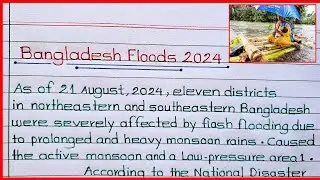 Bangladesh Floods 2024
As of 21 August, 2024, eleven districts
in northeastern and southeastern Bangladesh
were severely affected by flash flooding due
to prolonged and heavy monsoon rains. Caused
the active monsoon and a Low-pressure area 1.
According to the National Disaster